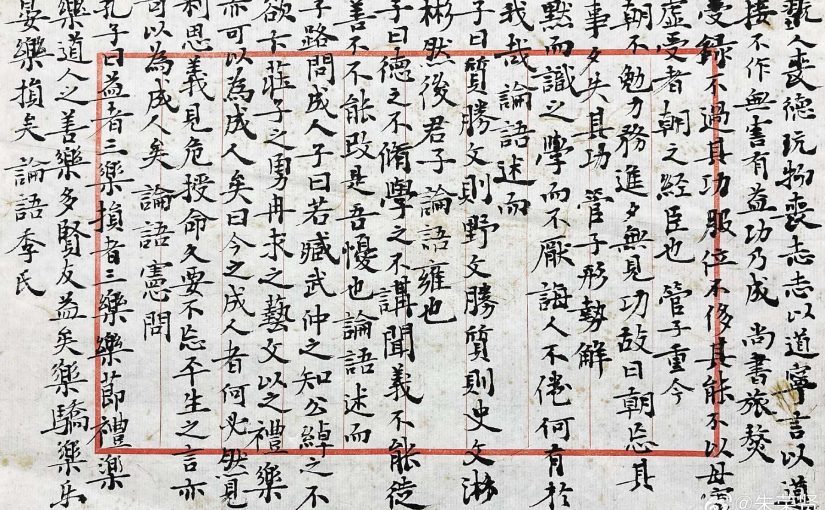 翫人喪德玩物喪志志以道寧言以道
接不作無害有益功乃成 尚書旅獒
受錄不過其功服位不侈其能不以毋實
虛受者朝之經臣也 管子重今
朝不勉力務進夕無見功故曰朝忘其
事夕失其功 管子形勢解
默而識之學而不厭誨人不倦何有於
我哉論語述而
子曰質勝文則野文勝質則史文
彬然後君子論語雍也
子曰德之不脩學之不講聞義不能徙
善不不能改是吾憂也論語述而
子路問成人子曰若臧武仲之知公綽之不
欲卞莊子之勇冉求之藝文以之禮樂
亦可以為成人矣曰今之成人者何必然見
利思義見危授命久要不忘平生之言亦
可以為成人矣論語憲問
孔子曰益者三樂損者三樂樂節禮樂
樂道人之善樂多賢友益矣樂驕樂乐
宴樂損矣論語季氏